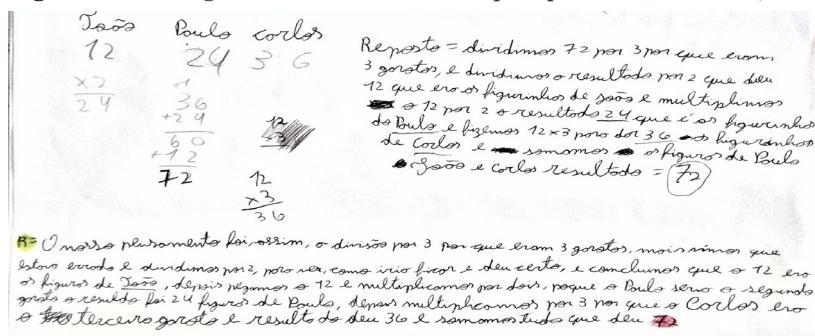 João Paulo Corlos
12 24 36
x2
24
+1
36
+24
60
+12
72
12
x3
36
Reposto = dividimos 72 por 3 por que eram
3 gorotos, e dividimos o resultado por 2 que deu
12 que ero os figurinhos de João e multiplimos
o 12 por 2 o resultado 24 que é os figurinhos
do Paulo e fizemos 12x3 poro dor 36 os figurinhos
de Corlos e somomos os figuros de Paulo
João e Corlos resultado = 72
R= O nosso pensamento foi, assim, o divisão por 3 por que eram 3 gorotos, mois vimos que
estovo errodo e dividimos por 2, poro ver, como irio ficor e deu certo, e concluimos que o 12 ero
os figuros de João, depois pegamos o 12 e multiplicomos por dois, poque o Paulo serio o segundo
goroto o resultdo foi 24 figuros de Paulo, depois multiplicomos por 3 por que o Corlos ero
o terceiro goroto e resultodo deu 36 e somomos tudo que deu 72